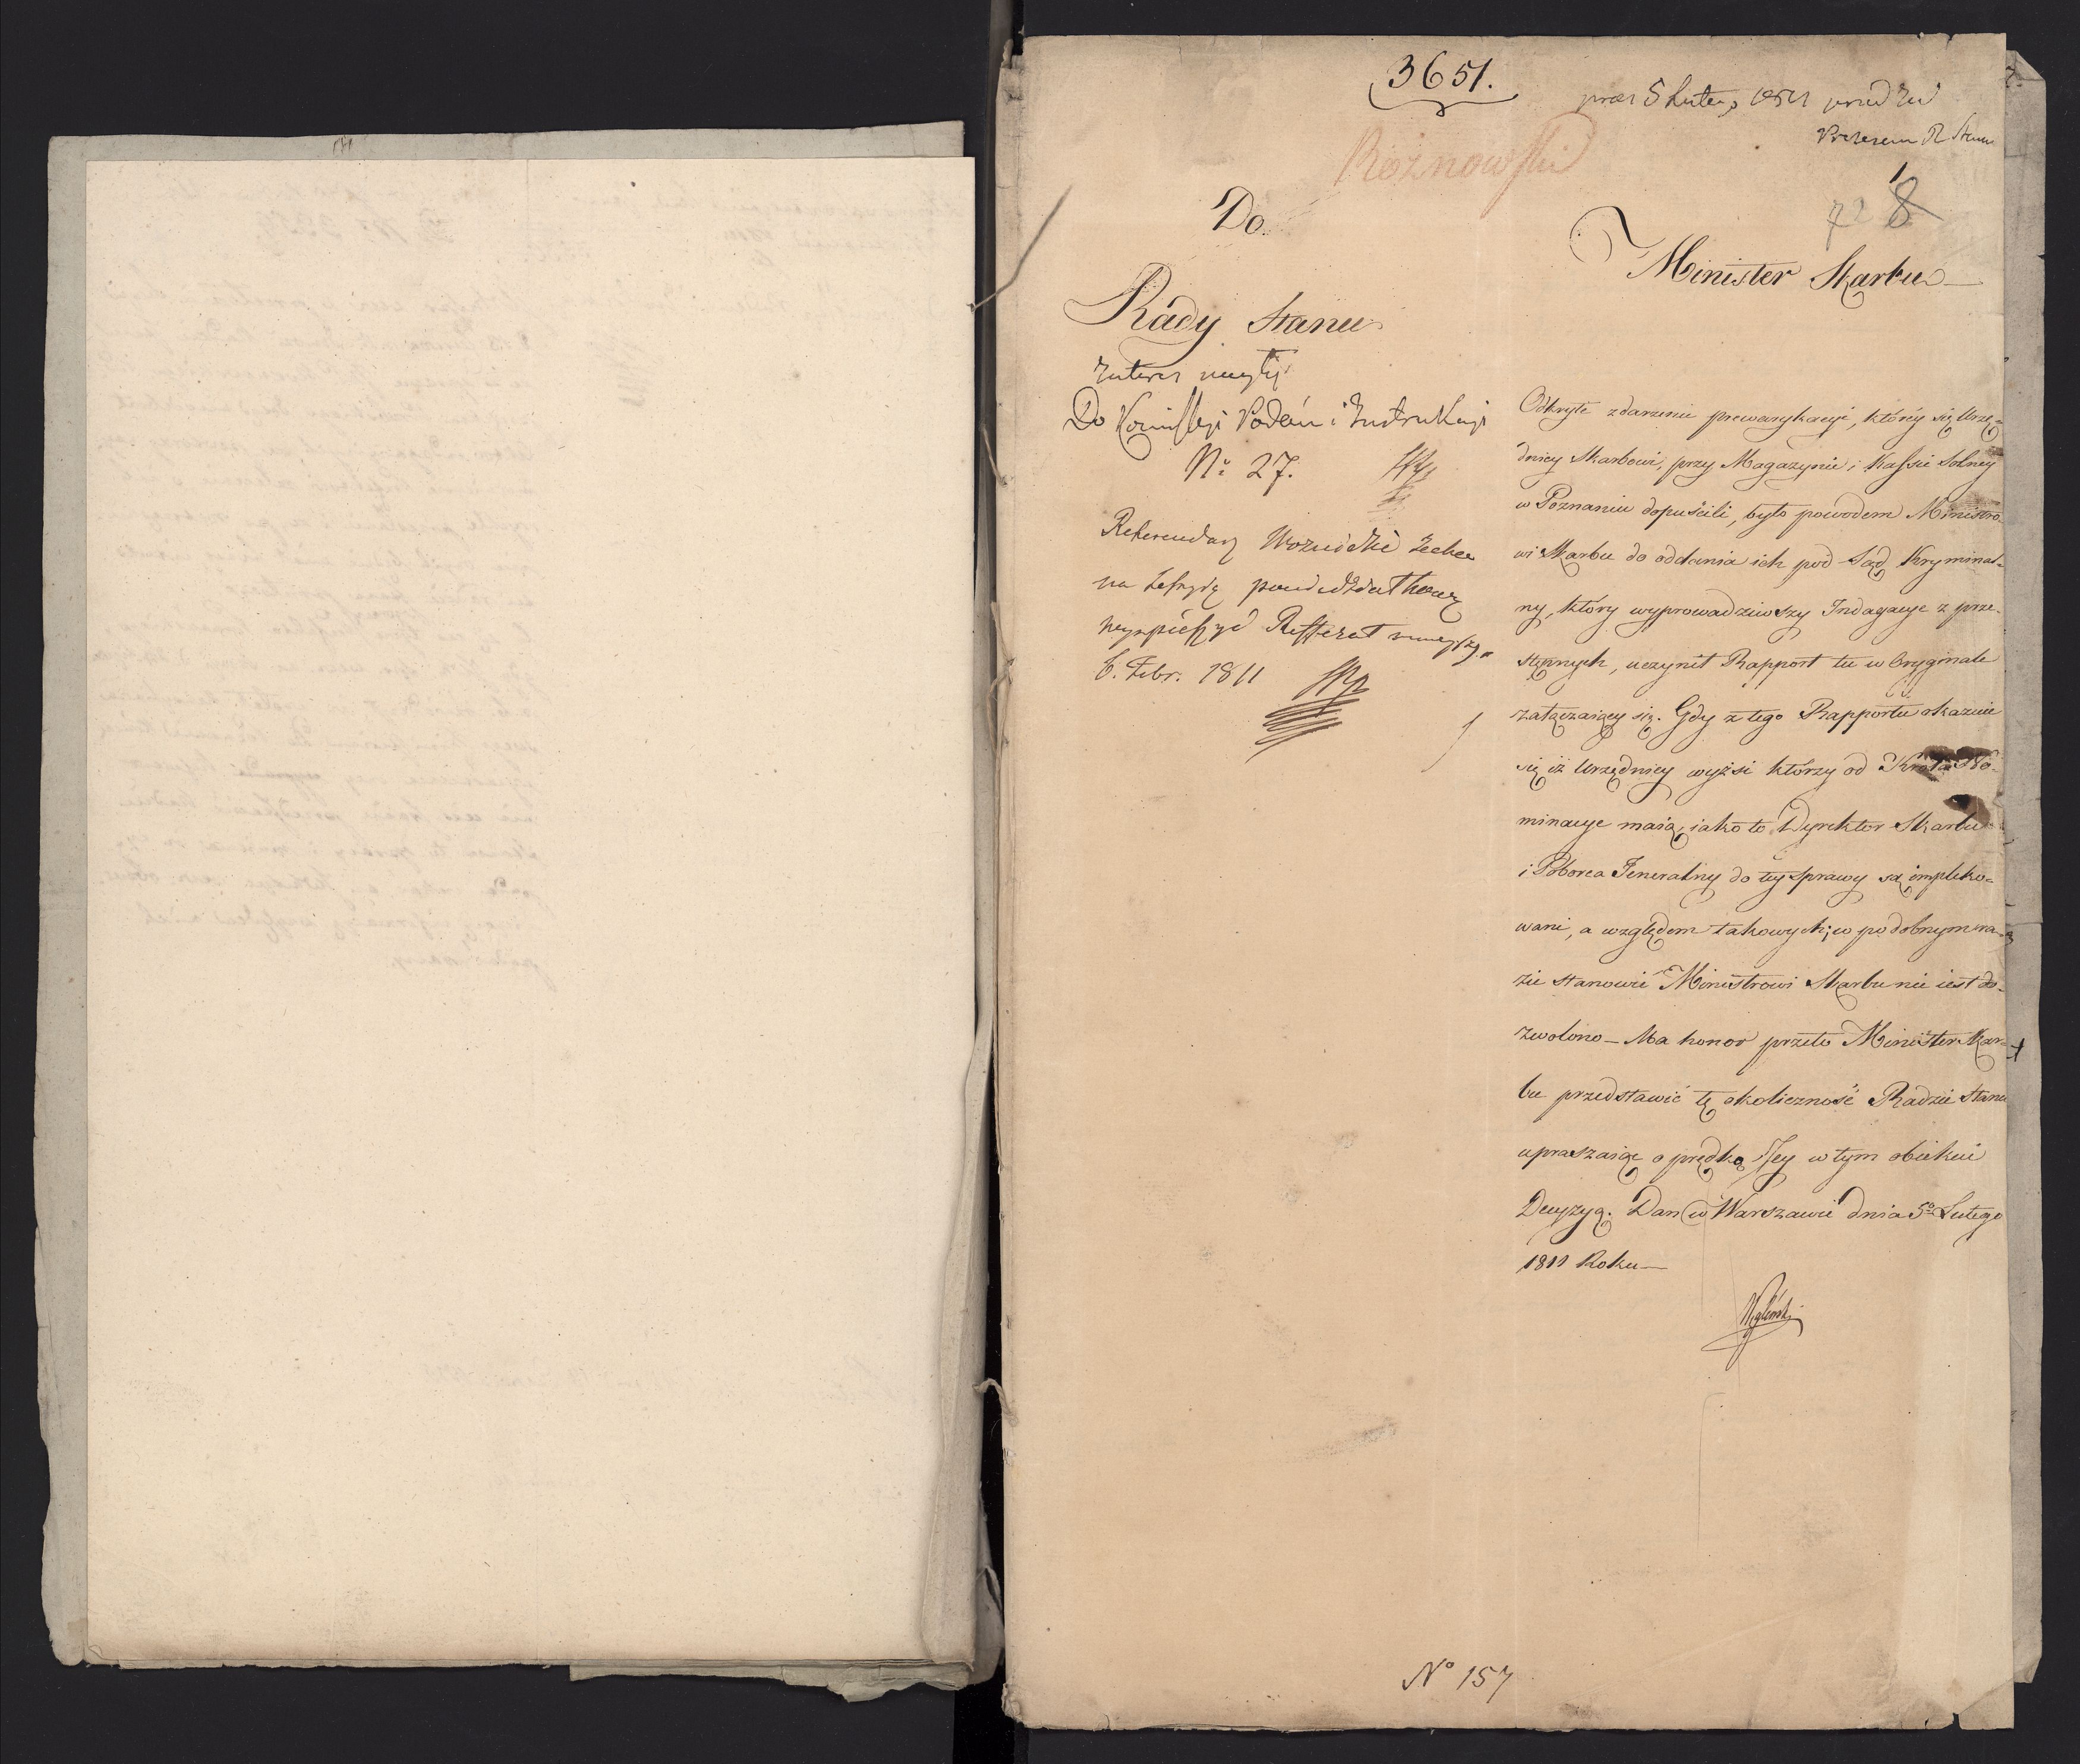 3651.
5 Lutego 1811
Prezesem R Stanu
Rożnowski
1
72 8
Do
Rady Stanu
Do Kommissyi Podań i Instrukcyi
Nº 27.
Referendarz Woznicki zechce
na Sessyą
Refferat
6. Febr. 1811
Minister Skarbu
Odkryte zdarzenie prewarykacyi, któréy się Urzę=
dnicy Skarbowi, przy Magazynie i Kassie Solney
w Poznaniu dopuścili, było powodem Ministro=
wi Skarbu do oddania ich pod Sąd Kryminal=
ny, który wyprowadziwszy Indagacye z prze=
stępnych, uczynił Rapport tu w Oryginale
załączaiący się. Gdy z tego Rapportu okazuie
się iż Urzędnicy wyżsi którzy od Króla No=
minacye maią, iako to Dyrektor Skarbu
i Poborca Jeneralny do tey sprawy są impliko=
wani, a względem takowych, w podobnym ra=
zie stanowić Ministrowi Skarbu nie iest do=
zwolono – Ma honor przeto Minister Skar=
bu przedstawić tę okoliczność Radzie Stanu
upraszaiąc o prędką Jey w tym obiekcie
Decyzyą. Dan w Warszawie dnia 5º Lutego
1811 Roku –
Węgleński
Nº 157